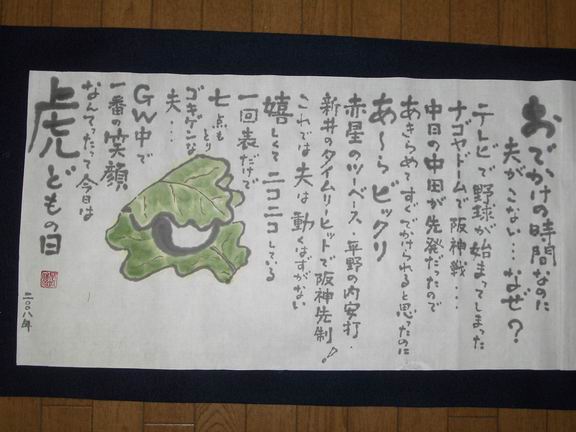 おでかけの時間なのに
夫がこない…なぜ？
テレビで野球が始まってしまった
ナゴヤドームで阪神戦・・・
中日の中田が先発だったので
あきらめてすぐでかけられると思ったのに
あ〜らビックリ
赤星のツーベース・平野の内安打・
新井のタイムリーヒットで阪神先制！
これでは夫は動くはずがない
嬉しくてニコニコしている
一回表だけで
七点もとり
ゴキゲンな
夫・・・
GW中で
一番の笑顔
なんてったって今日は
虎どもの日
二〇〇八年